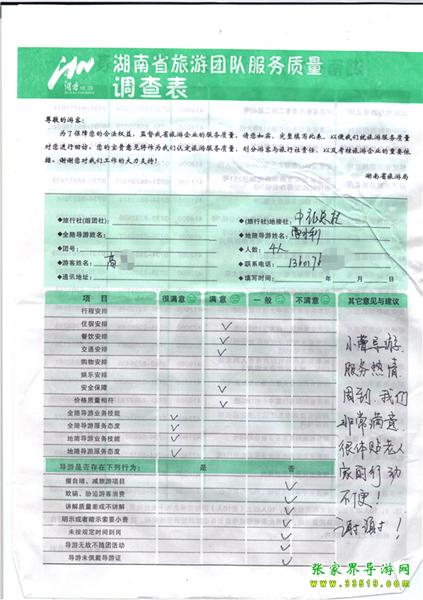 湖南省旅游团队服务质量
调查表
尊敬的游客：
为了保障您的合法权益，监督我省旅游企业的服务质量，请您如实、完整填写此表，以便我们就旅游服务质量
对您进行回访。您的宝贵意见将作为我们认定旅游服务质量、划分游客与旅行社责任、以及考核旅游企业的重要依
据。谢谢您对我们工作的大力支持！
湖南省旅游局
◆旅行社(组团社)：
◆(旅行社)地接社：
◆全陪导游姓名：
◆地陪导游姓名：
◆团号：
◆人数：4人
◆游客姓名：
◆联系电话：
◆通讯地址：
◆填写时间： 年 月 日
项 目 很满意 满 意 一 般 不满意 其它意见与建议
行程安排
住宿安排 ✓
餐饮安排 ✓
交通安排 ✓
购物安排
娱乐安排
安全保障 ✓
价格质量相符 ✓
全陪导游业务技能 ✓
全陪导游服务态度 ✓
地陪导游业务技能 ✓
地陪导游服务态度 ✓
导游是否存在下列行为： 是 否
擅自增、减旅游项目 ✓
欺骗、胁迫游客消费 ✓
讲解质量差或不讲解 ✓
明示或者暗示索要小费 ✓
未按规定时间到岗 ✓
导游无故不随团活动 ✓
导游未佩戴导游证 ✓
导游
服务热情
周到.我们
非常满意
很体贴老人
家
不便！
谢谢！
张家界导游网
www.33519.com